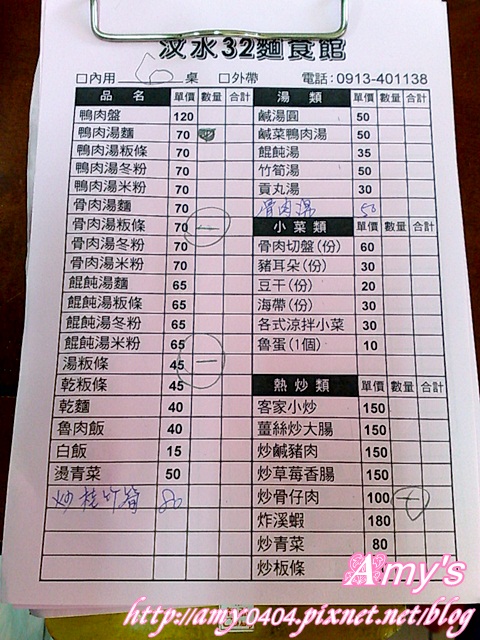 汶水32麵食館
□內用 6 桌 □外帶 電話:0913-401138
品名 單價 數量 合計
鴨肉盤 120
鴨肉湯麵 70
鴨肉湯粄條 70
鴨肉湯冬粉 70
鴨肉湯米粉 70
骨肉湯麵 70
骨肉湯粄條 70 一
骨肉湯冬粉 70
骨肉湯米粉 70
餛飩湯麵 65
餛飩湯粄條 65
餛飩湯冬粉 65
餛飩湯米粉 65
湯粄條 45 一
乾粄條 45
乾麵 40
魯肉飯 40
白飯 15
燙青菜 50
炒桂竹筍 80
湯類 單價 數量 合計
鹹湯圓 50
鹹菜鴨肉湯 50
餛飩湯 35
竹筍湯 50
貢丸湯 30
骨肉湯 50
小菜類 單價 數量 合計
骨肉切盤(份) 60
豬耳朵(份) 30
豆干(份) 20
海帶(份) 30
各式涼拌小菜 30
魯蛋(1個) 10
熱炒類 單價 數量 合計
客家小炒 150
薑絲炒大腸 150
炒鹹豬肉 150
炒草莓香腸 150
炒骨仔肉 100
炸溪蝦 180
炒青菜 80
炒板條
Amy's
http://amy0404.pixnet.net/blog